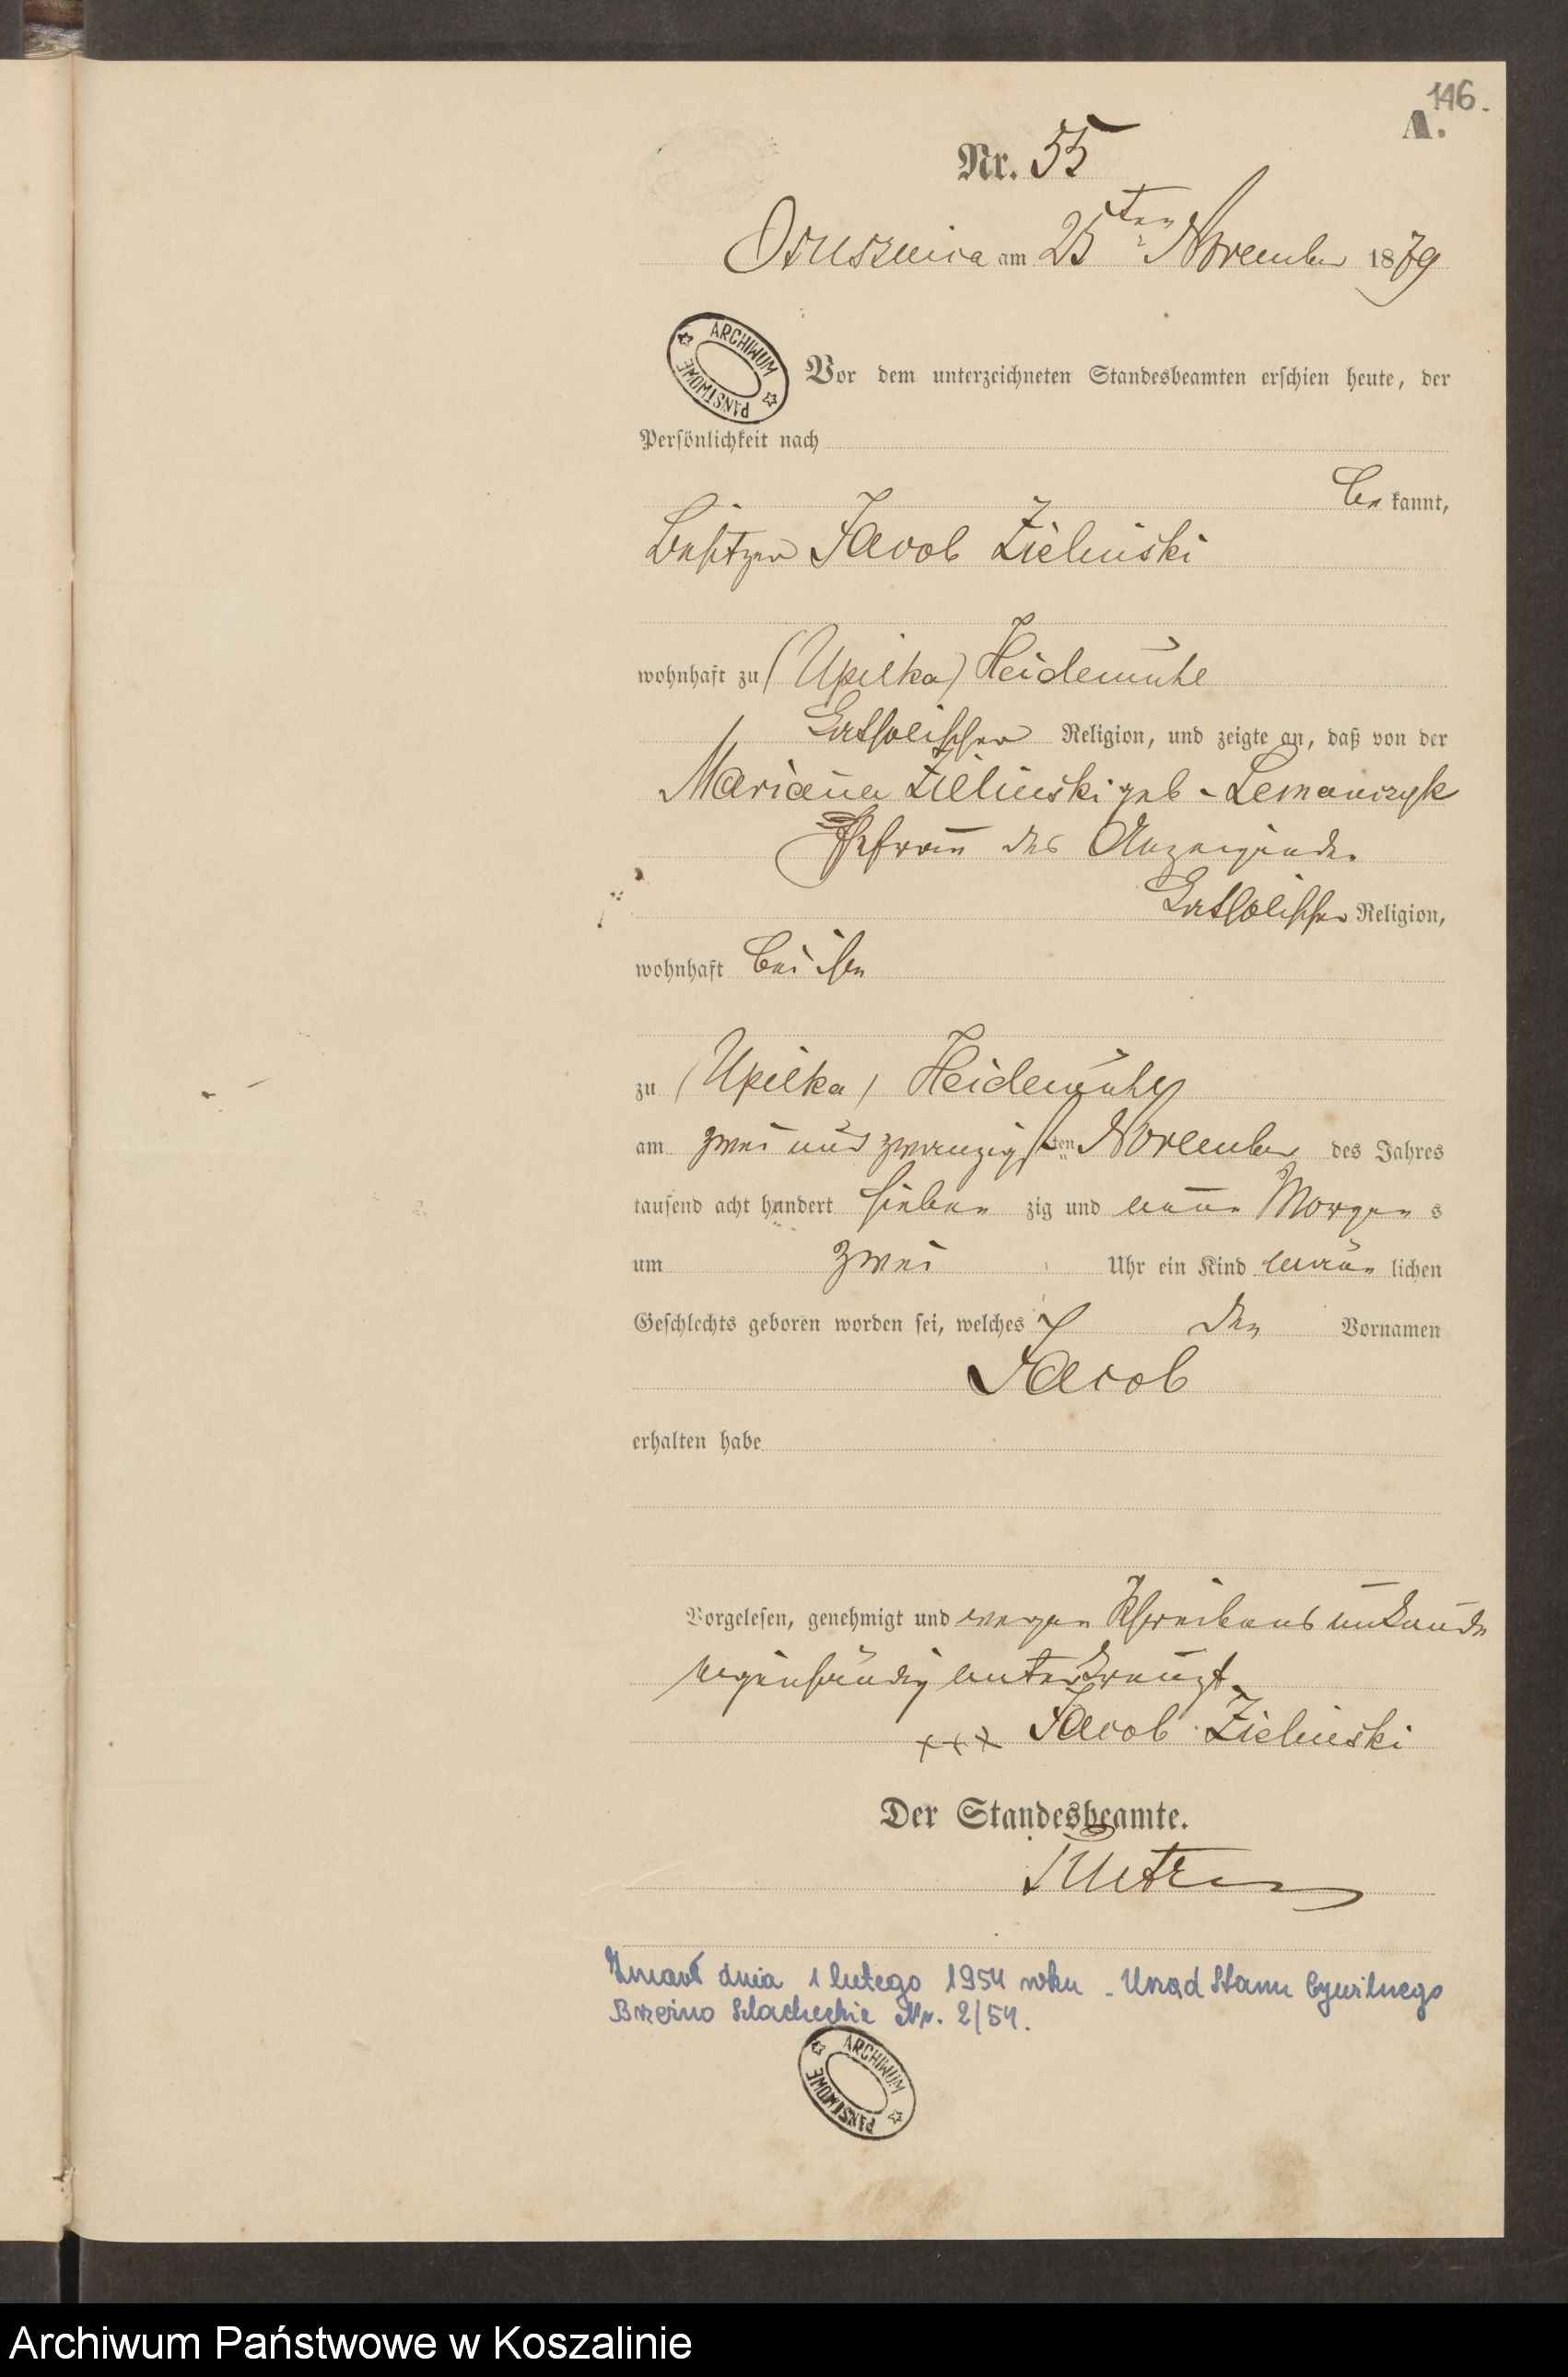 146.
A.
Nr. 55
Osusznica am 25ten November 1879
ARCHIWUM PAŃSTWOWE
Vor dem unterzeichneten Standesbeamten erschien heute, der
Persönlichkeit nach
be kannt,
Besitzer Jacob Zielinski
wohnhaft zu (Upilka) Heidemühl
katholischer Religion, und zeigte an, daß von der
Marianna Zielinski geb. Lemanczyk
Ehefrau des Anzeigenden
katholischer Religion,
wohnhaft bei ihm
zu (Upilka) Heidemühl
am zwei und zwanzigsten November des Jahres
tausend acht hundert sieben zig und neun Morgens
um zwei Uhr ein Kind männ lichen
Geschlechts geboren worden sei, welches den Vornamen
Jacob
erhalten habe
Vorgelesen, genehmigt und wegen Schreibensunkunde
eigenhändig unterkreuzt.
xxx Jacob Zielinski
Der Standesbeamte.
Zmarł dnia 1 lutego 1954 roku - Urząd Stanu Cywilnego
Brzeźno Szlacheckie Nr. 2/54.
ARCHIWUM PAŃSTWOWE
Archiwum Państwowe w Koszalinie